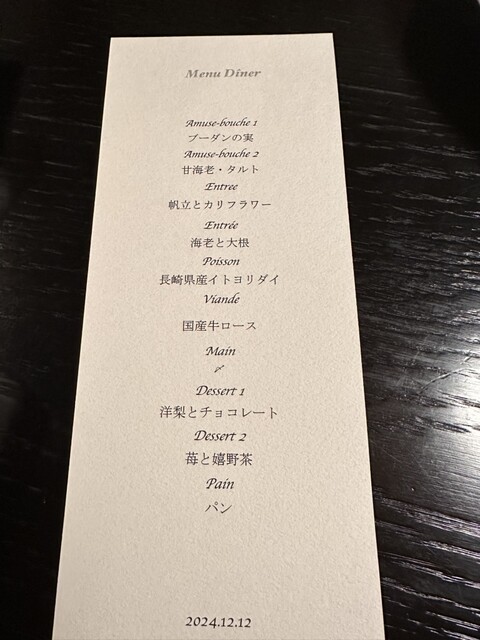 Menu Dîner
Amuse-bouche 1
ブーダンの実
Amuse-bouche 2
甘海老・タルト
Entree
帆立とカリフラワー
Entrée
海老と大根
Poisson
長崎県産イトヨリダイ
Viande
国産牛ロース
Main
〆
Dessert 1
洋梨とチョコレート
Dessert 2
苺と嬉野茶
Pain
パン
2024.12.12